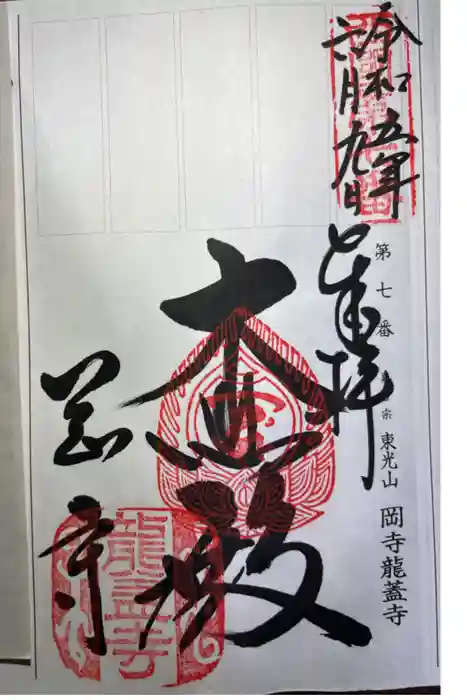 令和五年
六月九日
奉拝
第七番
宗 東光山 岡寺龍蓋寺
大悲殿
岡寺
龍蓋寺